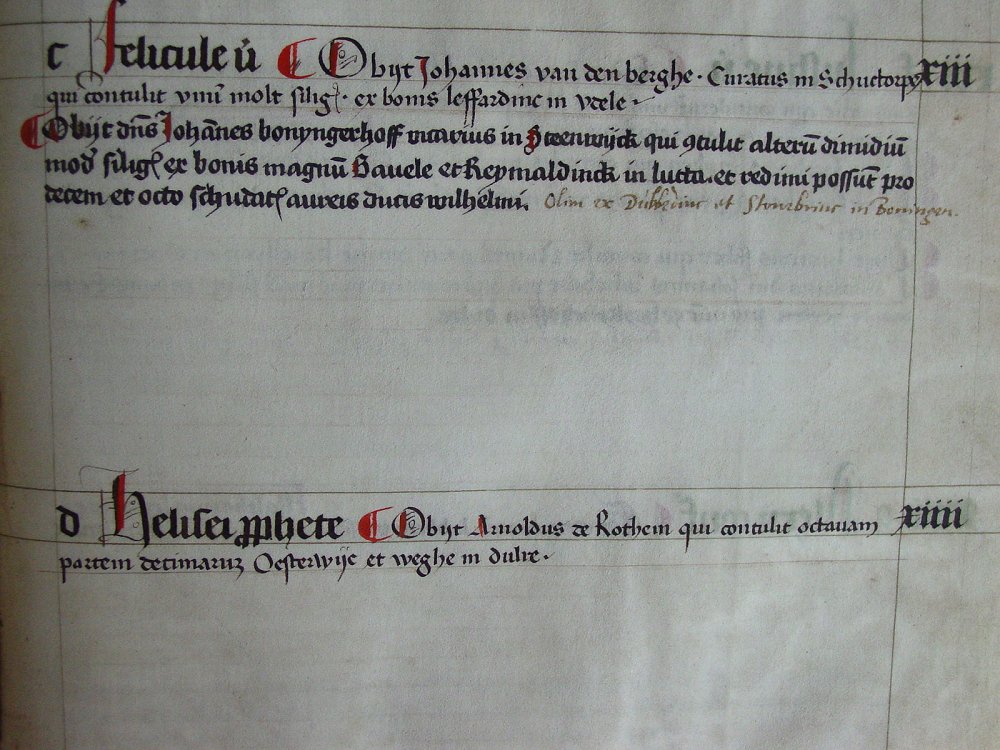 c Felicule v̄ Obijt Johannes van den berghe · Curatus in Schuctorpe xiii
qui contulit vnū molt silig̃ · ex bonis leffardinc in vcele ·
Obijt dn̄s Johān̄es bonyngerhoff vicarius in Steenwijck qui 9tulit alterū dimidiū
mod̓ silig̃ ex bonis magnū Gauele et Reymaldinck in lucta . et redimi possūt pro
decem et octo schudat̃ aureis ducis wilhelmi . Olim ex Dubbedinc et Stouebrinc in Boningen .
d Helisei ꝓphete Obijt Arnoldus de Rothem qui contulit octauam xiiii
partem decimarum Oesterwijc et weghe in dulre ·